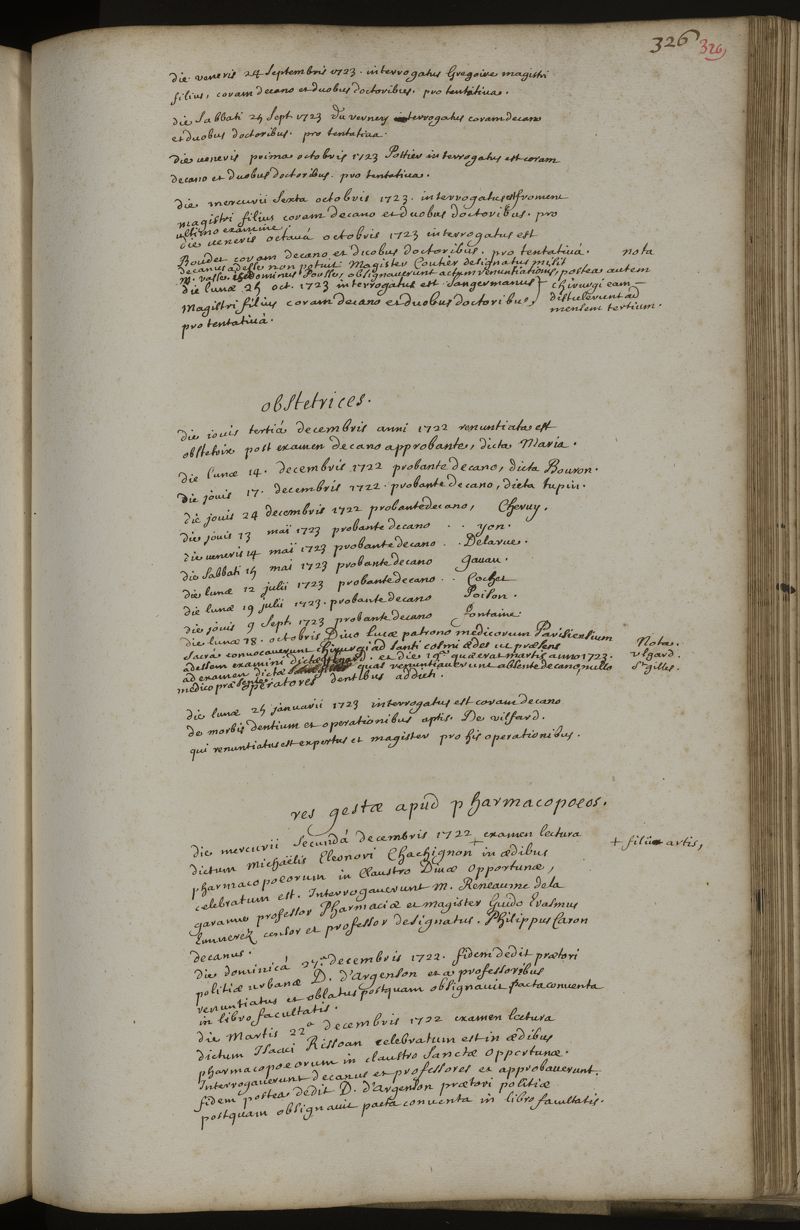 326 326
die veneris 24 Septembris 1723. interrogatus Gregoire magistri
filius, coram decano et duobus doctoribus. pro tentativa.
die Sabbati 25 Sept. 1723 du verney interrogatus coram decano
et duobus doctoribus. pro tentativa.
die veneris prima octobris 1723 Pottier interrogatus est coram
decano et duobus doctoribus. pro tentativa.
die mercurii Sexta octobris 1723. interrogatus est froment
magistri filius coram decano et duobus doctoribus. pro
ultimo examine.
die veneris octavá octobris 1723 interrogatus est
Boudet coram decano et duobus doctoribus. pro tentativá.
decanus adesse non potuit Magister Coutier designatus misit
M. vasse et Dominus Pousse, obsignaverunt actum renuntiationis, postea autem
nota
chirurgi eam
distulerunt ad
mensem tertium.
die lunæ 25 oct. 1723 interrogatus est Sangermanus
Magistri filius coram decano et duobus doctoribus,
pro tentativá.
obstetrices.
die iovis tertiá decembris anni 1722 renuntiata est
obstetrix post examen decano approbante, dicta Maria.
die lunæ 14. decembris 1722 probante decano, dicta Bouron.
die jovis 17. decembris 1722. probante decano, dicta tupin.
die jovis 24 decembris 1722 probante decano, Chevuy.
die jovis 13 maï 1723 probante decano . . yon.
die veneris 14 maï 1723 probante decano . . Delarue.
die Sabbati 15 mai 1723 probante decano Gavau.
die lunæ 12 julii 1723 probante decano . . Cochet
die lunæ 19 julii 1723. probante decano Poison.
die jovis 9 Sept. 1723 probante decano fontaine.
die lunæ 18. octobris Divo Lucæ patrono medicorum Parisiensium
Sacra convocaverunt Chirurgi ad Santi cosmi ædes ut præsens
adessem examini dictæ et die 19ª quæ erat martis anno 1723.
ad examen dictæ quas renuntiaverunt absente decano, nullo
medico præsente.
Nota.
vlgard.
St gilles.
operatores dentibus addicti.
die lunæ 25 januarii 1723 interrogatus est coram decano
de morbis dentium et operationibus aptis. De vilfard.
qui renuntiatus est expertus et magister pro his operationibus.
res gestæ apud pharmacopoeos.
die mercurii Secundá decembris 1722 examen lectura
dictum Michaëlis Eleonori Chachignon + in ædibus
+ filii artis,
pharmacopoeorum in claustro Divæ Opportunæ,
celebratum est. Interrogaverunt M. Reneaume de la
garanne professor Pharmaciæ et magister Guido Erasmus
Emmerez censor et professor designatus. Philippus Caron
decanus.
die dominicá 27ª decembris 1722. fidem dedit prætori
politiæ urbanæ D. d'Argenson et a professoribus
renuntiatus et oblatus postquam obsignavit pacta conventa
in libro facultatis.
die Martis 22ª decembris 1722 examen lectura
dictum Isaaci Rissoan celebratum est in ædibus
pharmacopoeorum in claustro Sanctæ Opportunæ.
Interrogaverunt decanus et professores et approbaverunt.
fidem postea dedit D. d'Argenson prætori politiæ
postquam obsignavit pacta conventa in libro facultatis.